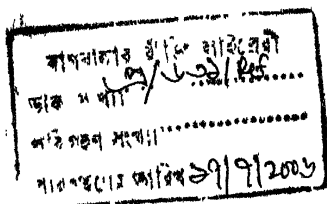 বাগবাজার রীডিং লাইব্রেরী
ডাক সংখ্যা
পরিগ্রহণ সংখ্যা
পরিগ্রহণের তারিখ ১৭/৭/2005